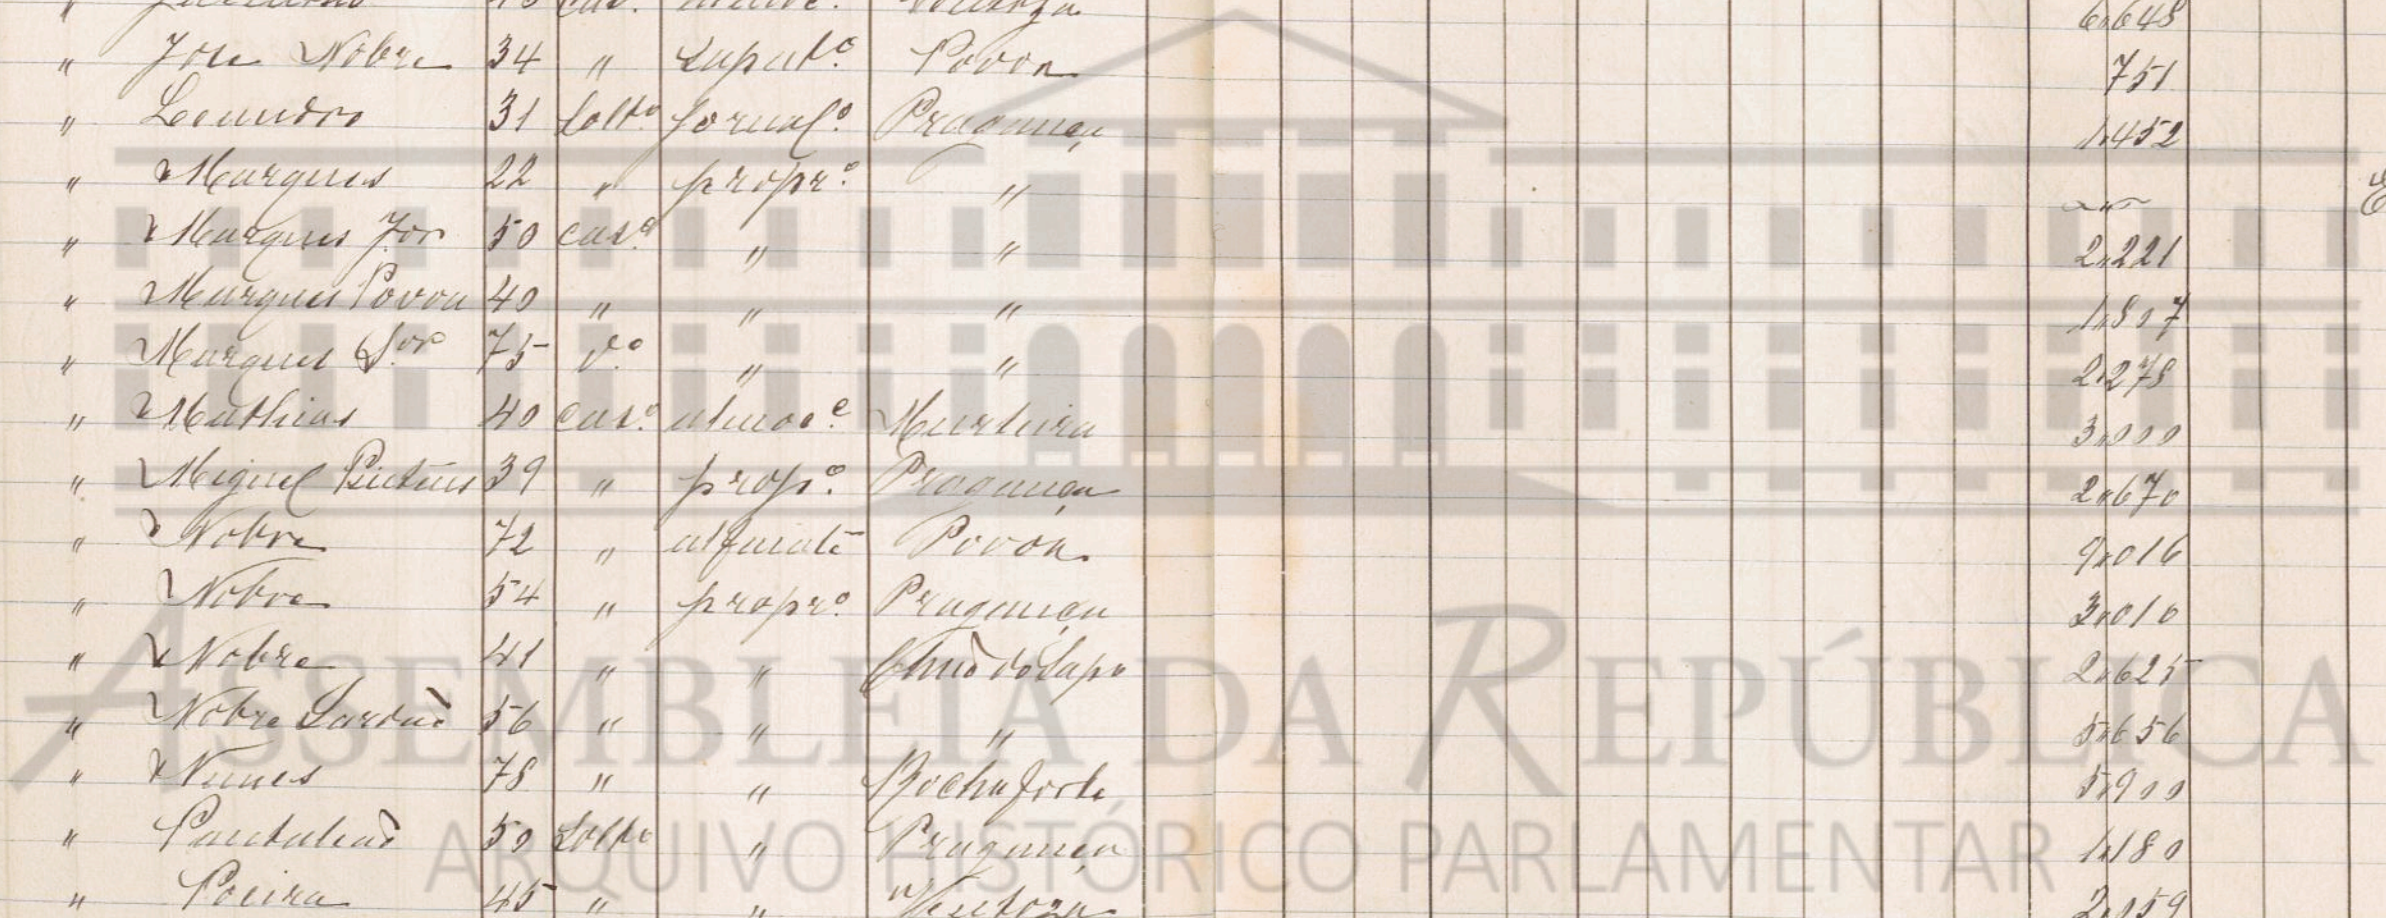 6,648
" Jose Nobre 34 " Sapat.º Povoa 751
" Leandro 31 Solt.º Jornal.º Pragança 1,452
" Marques 22 " propr.º "
" Marques Jor 50 cas.º " " 2,221
" Marques Povoa 40 " " " 1,807
" Marques Sor 75 v.º " " 2,278
" Mathias 40 cas.º almoc.e Murteira 3,000
" Miguel 39 " prop.º Pragança 2,670
" Nobre 72 " alfaiate Povoa 9,016
" Nobre 54 " propr.º Pragança 3,010
" Nobre 41 " " Chão do Sapo 2,625
" Nobre 56 " " " 5,656
" Nunes 78 " " Rochaforte 5,900
" Pantaleão 50 Soltº " Pragança 1,180
" Poeira 45 " " Ventoza 2,159
ASSEMBLEIA DA REPÚBLICA
ARQUIVO HISTÓRICO PARLAMENTAR